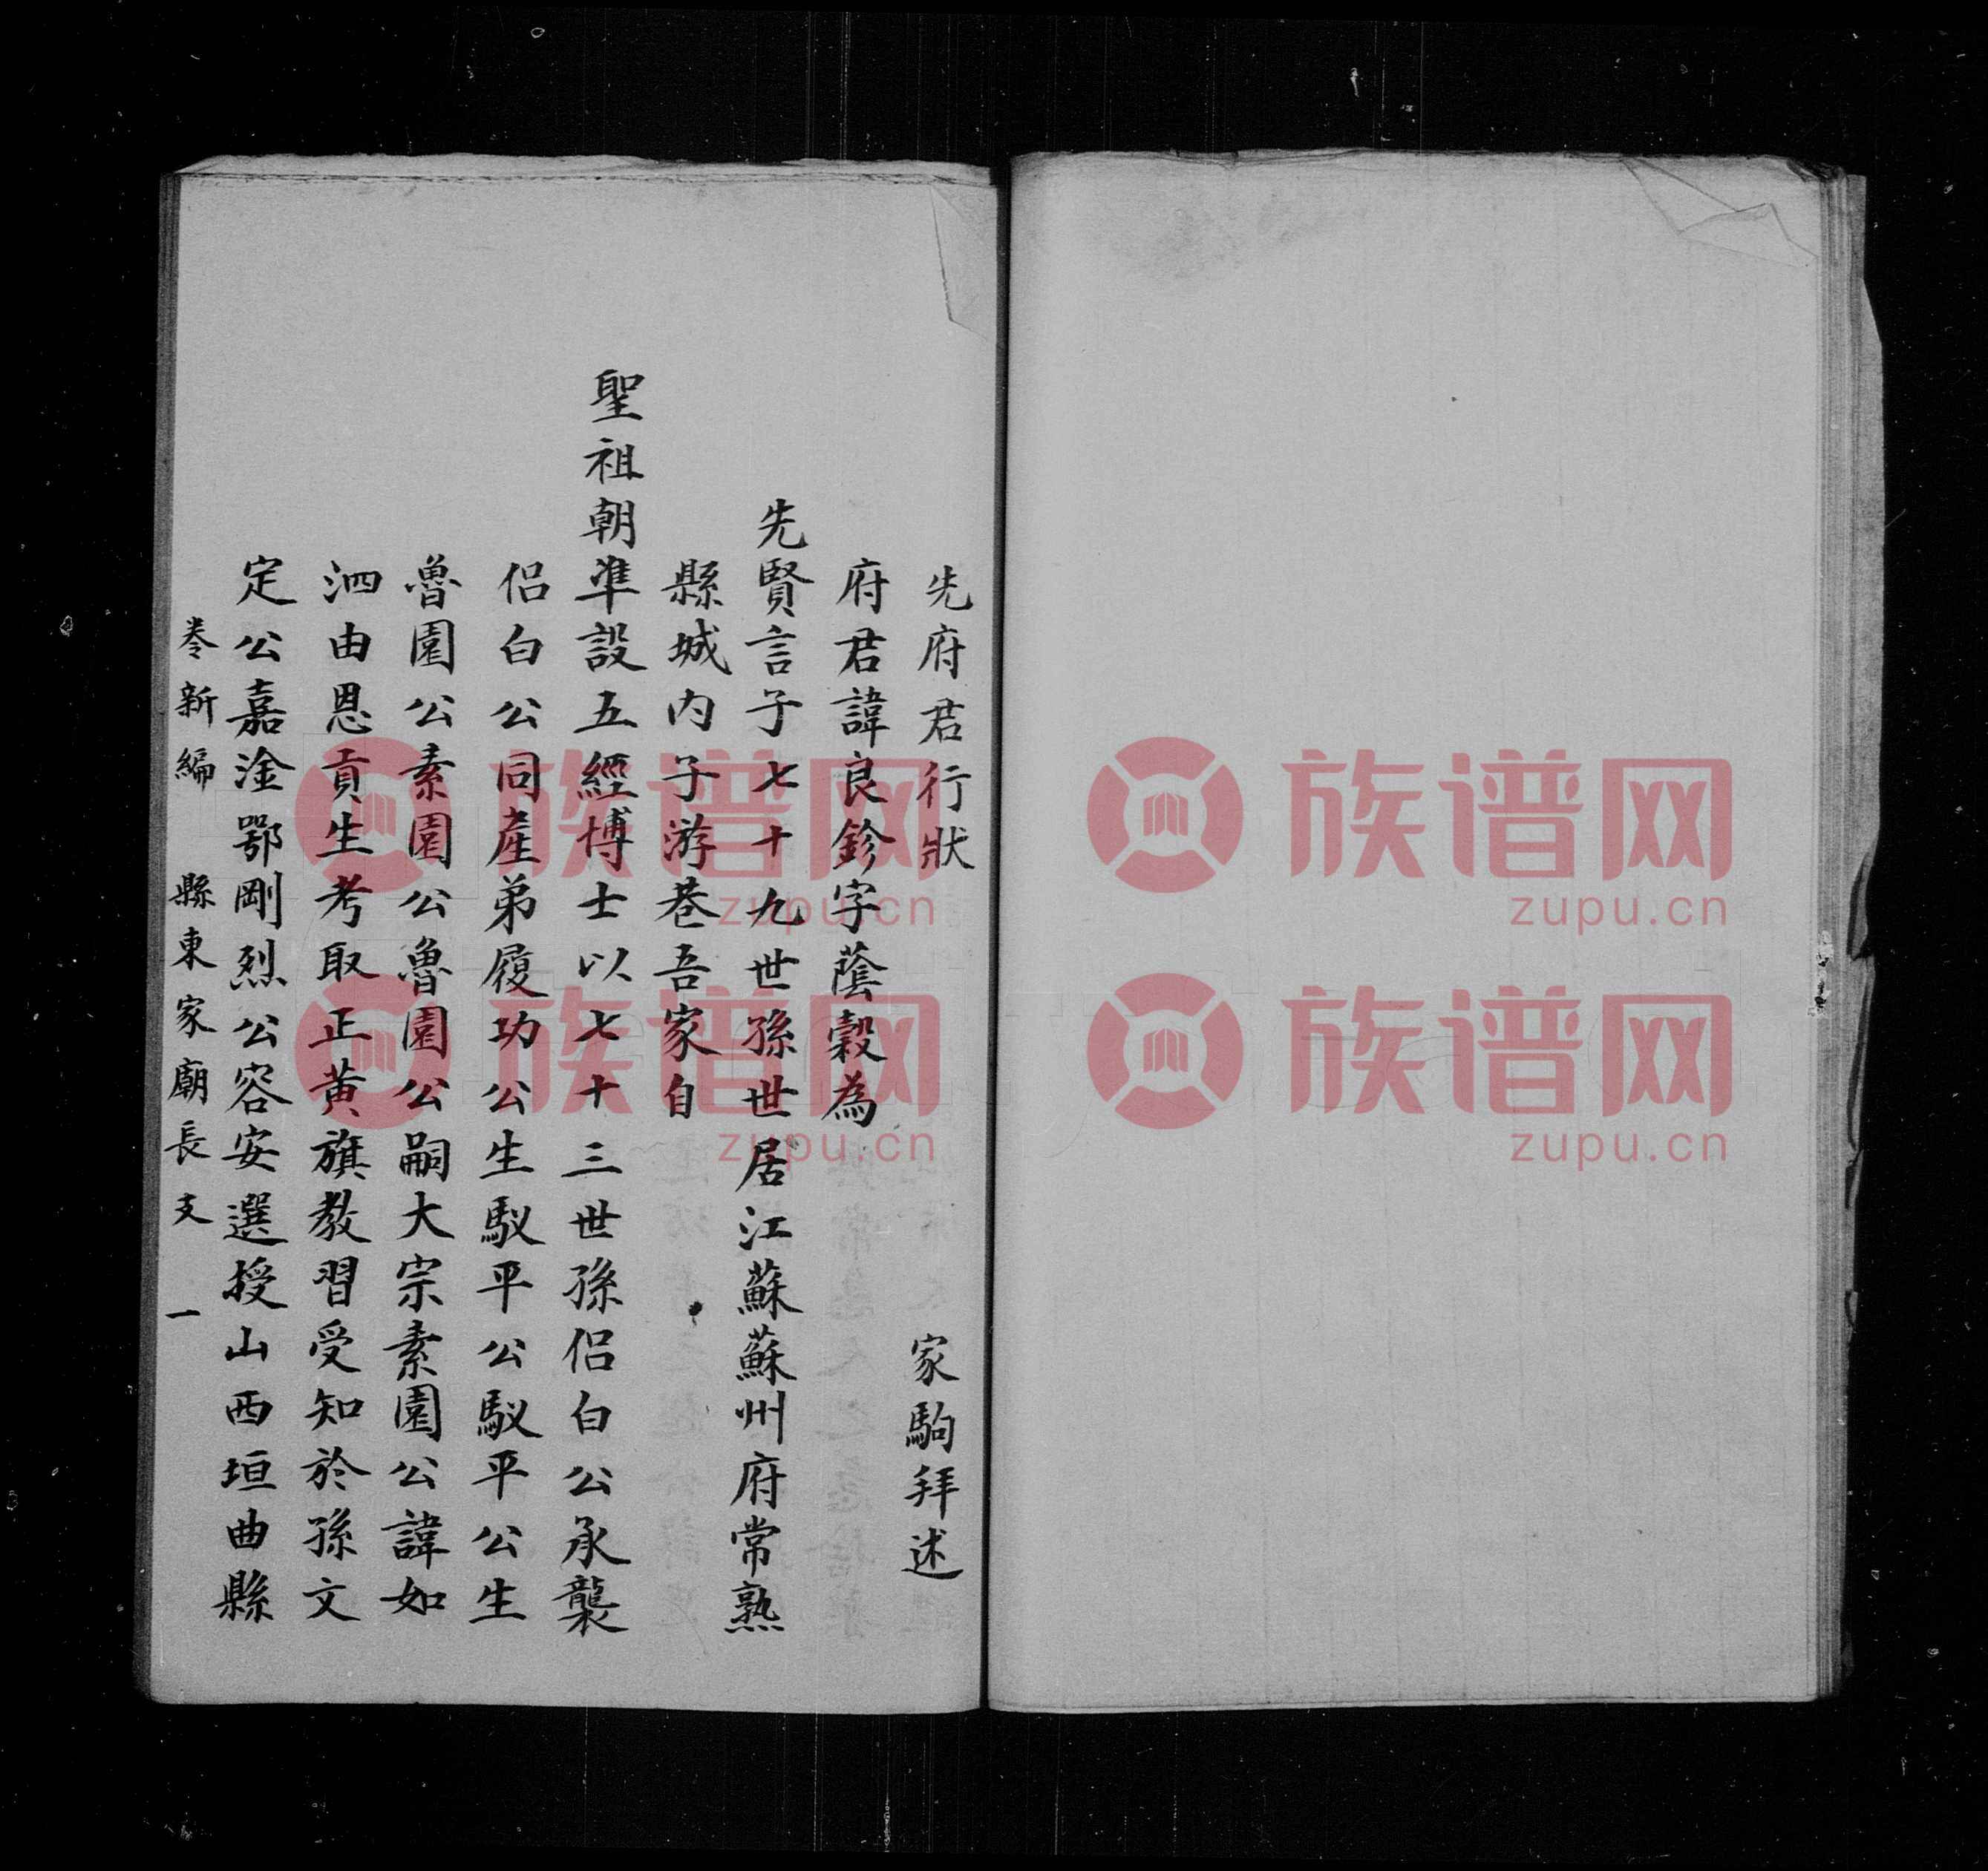 先府君行狀　家駒拜述
府君諱良鉁字蔭穀為
先賢言子七十九世孫世居江蘇蘇州府常熟
縣城内子游巷吾家自
聖祖朝准設五經博士以七十三世孫侶白公承襲
侶白公同產弟履功公生馭平公馭平公生
魯園公素園公魯園公嗣大宗素園公諱如
泗由恩貢生考取正黃旗教習受知於孫文
定公嘉淦鄂剛烈公容安選授山西垣曲縣
卷新編　縣東家廟長支　一
族谱网
zupu.cn
族谱网
zupu.cn
族谱网
zupu.cn
族谱网
zupu.cn